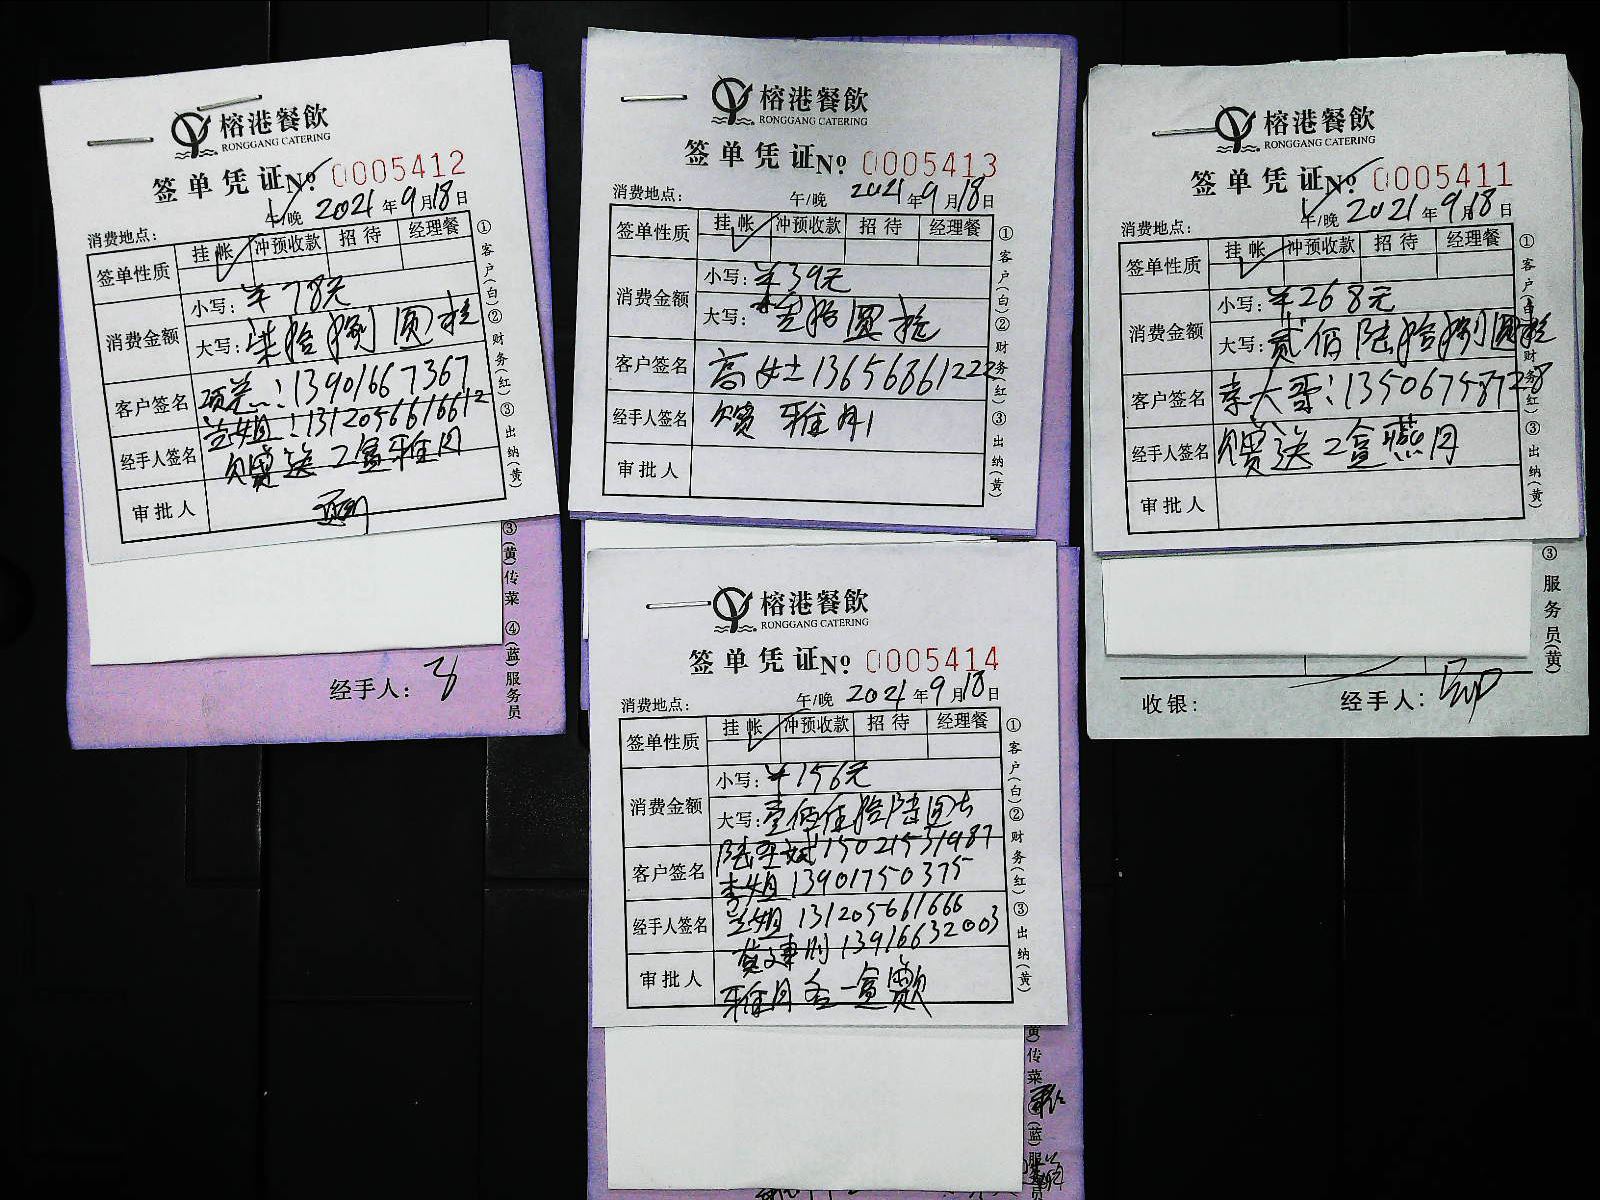 榕港餐飲
RONGGANG CATERING
签单凭证№ 0005412
午/晚 2021年9月18日
消费地点：
签单性质 挂帐 冲预收款 招待 经理餐
消费金额 小写：¥78元
大写：柒拾捌圆整
客户签名 13901667367
兰姐：131205661661
经手人签名 赠送2盒雅月
审批人
①客户(白)②财务(红)③出纳(黄)
③(黄)传菜 ④(蓝)服务员
经手人：
榕港餐飲
RONGGANG CATERING
签单凭证№ 0005413
消费地点： 午/晚 2021年9月18日
签单性质 挂帐 冲预收款 招待 经理餐
消费金额 小写：¥39元
大写：叁拾 圆整
客户签名 高女士13656861222
经手人签名 赠 雅月1
审批人
①客户(白)②财务(红)③出纳(黄)
榕港餐飲
RONGGANG CATERING
签单凭证№ 0005411
午/晚 2021年9月18日
消费地点：
签单性质 挂帐 冲预收款 招待 经理餐
消费金额 小写：¥268元
大写：贰佰陆拾捌圆整
客户签名 李大哥：13506758728
经手人签名 赠送2盒燕月
审批人
①客户(白)②财务(红)③出纳(黄)
③服务员(黄)
收银： 经手人：
榕港餐飲
RONGGANG CATERING
签单凭证№ 0005414
消费地点： 午/晚 2021年9月18日
签单性质 挂帐 冲预收款 招待 经理餐
消费金额 小写：¥156元
大写：壹佰伍拾陆圆
客户签名 陆亚斌15021531987
李姐 13901750375
经手人签名 兰姐 131205661666
黄 刚 13916632003
审批人 雅月各一盒
①客户(白)②财务(红)③出纳(黄)
(黄)传菜 (蓝)服务员